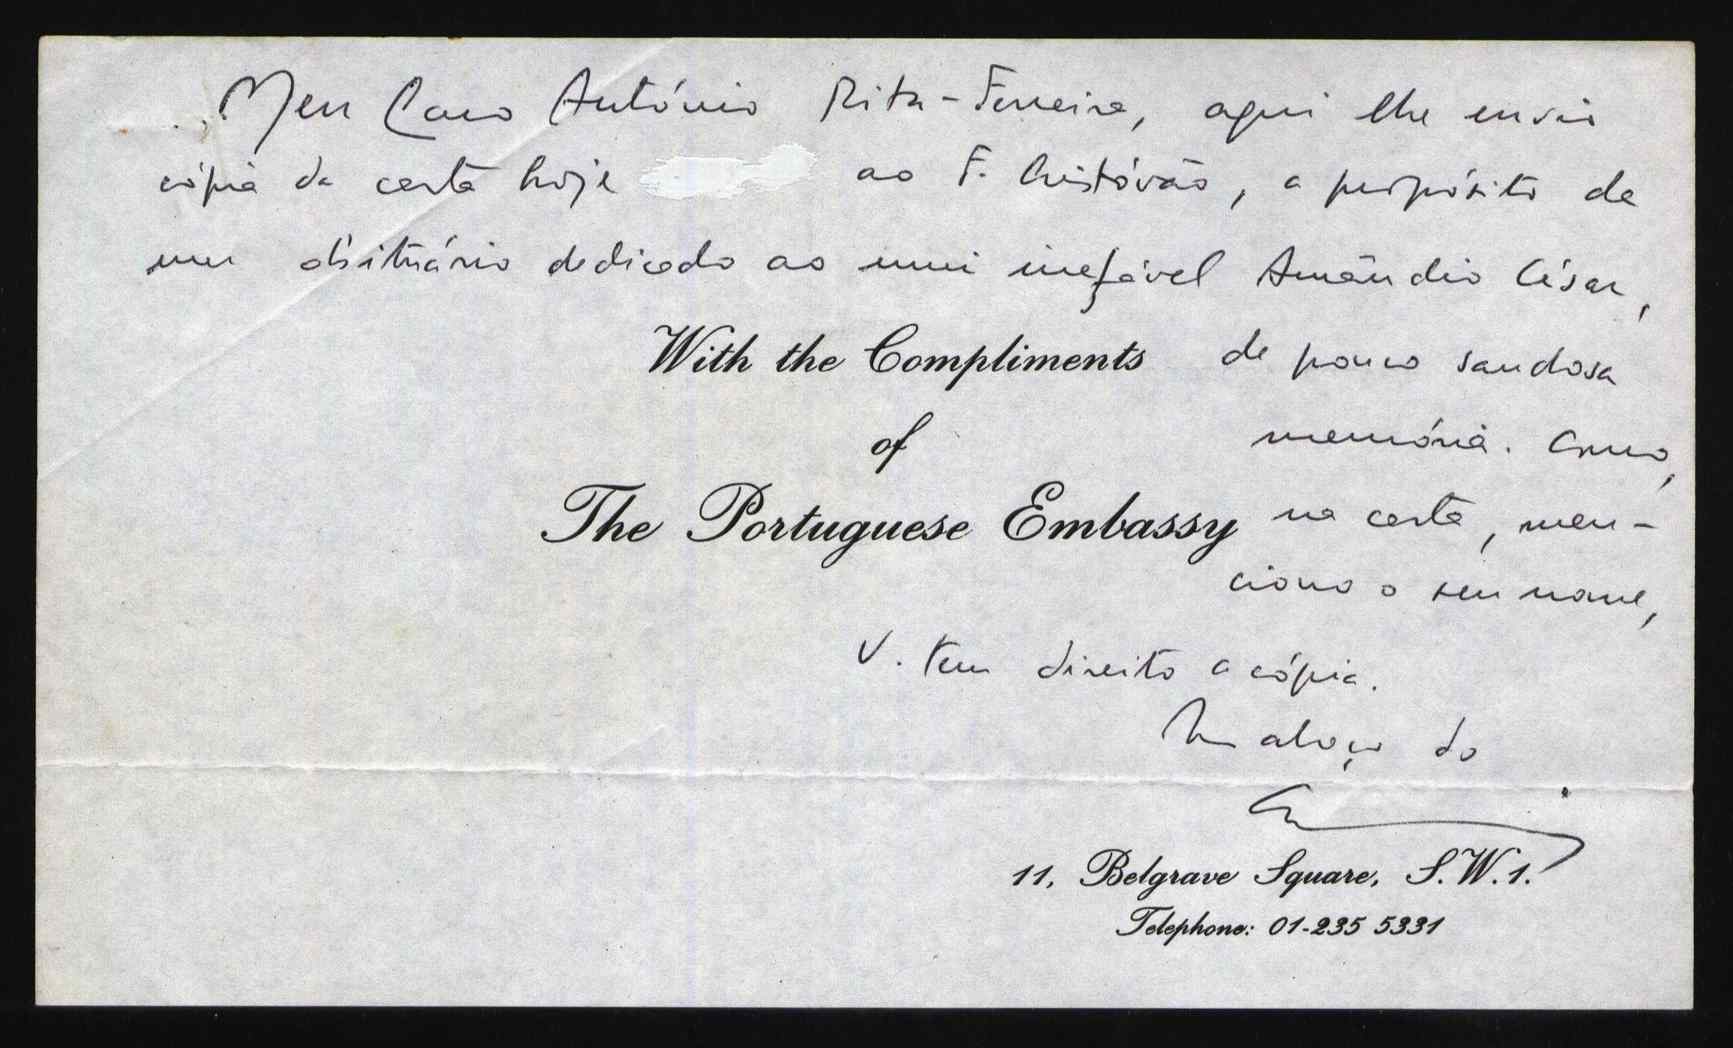 Meu Caro António Rita-Ferreira, aqui lhe envio
cópia da carta hoje ao F. Cristóvão, a propósito de
um obituário dedicado ao mui inefável Amândio César,
With the Compliments de pouco saudosa
of memória. Como,
The Portuguese Embassy na carta, men-
ciono o seu nome,
V. tem direito a cópia.
Um abraço do
11, Belgrave Square, S.W.1.
Telephone: 01-235 5331